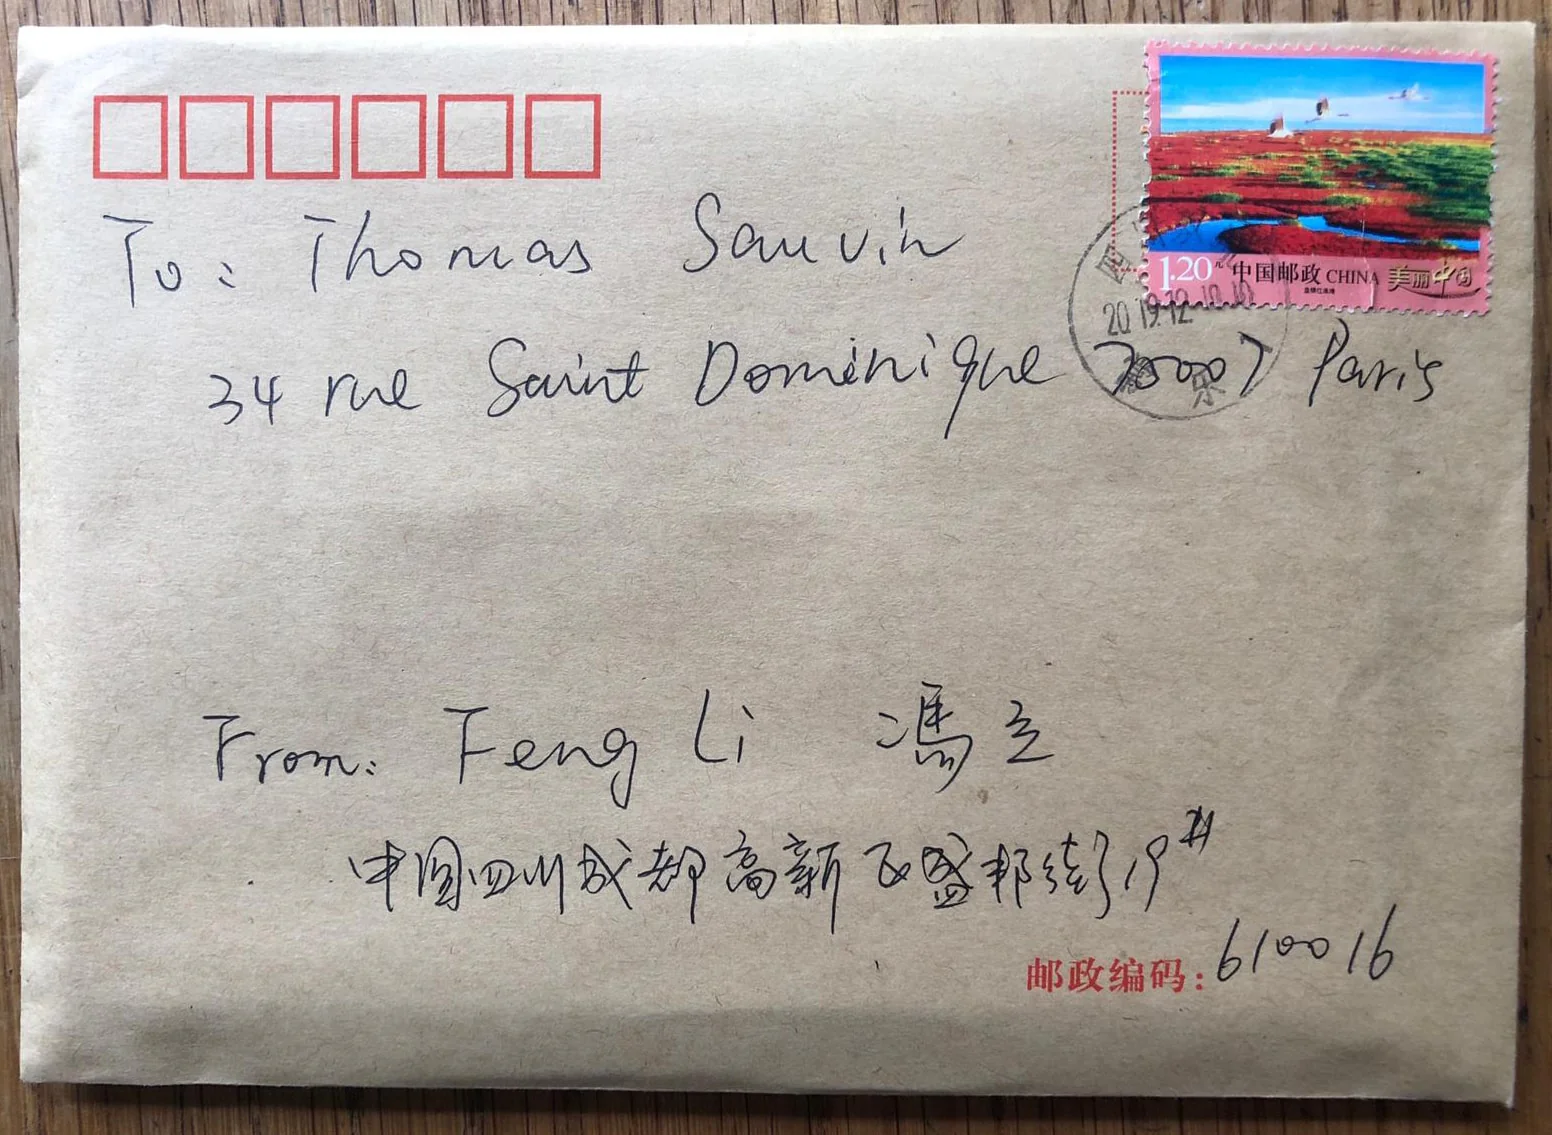 1.20元 中国邮政 CHINA 美丽中国
2019.12.10.10
To: Thomas Sauvin
34 rue Saint Dominique 75007 Paris
From: Feng Li 冯立
中国四川成都高新区盛邦街 19#
邮政编码: 610016